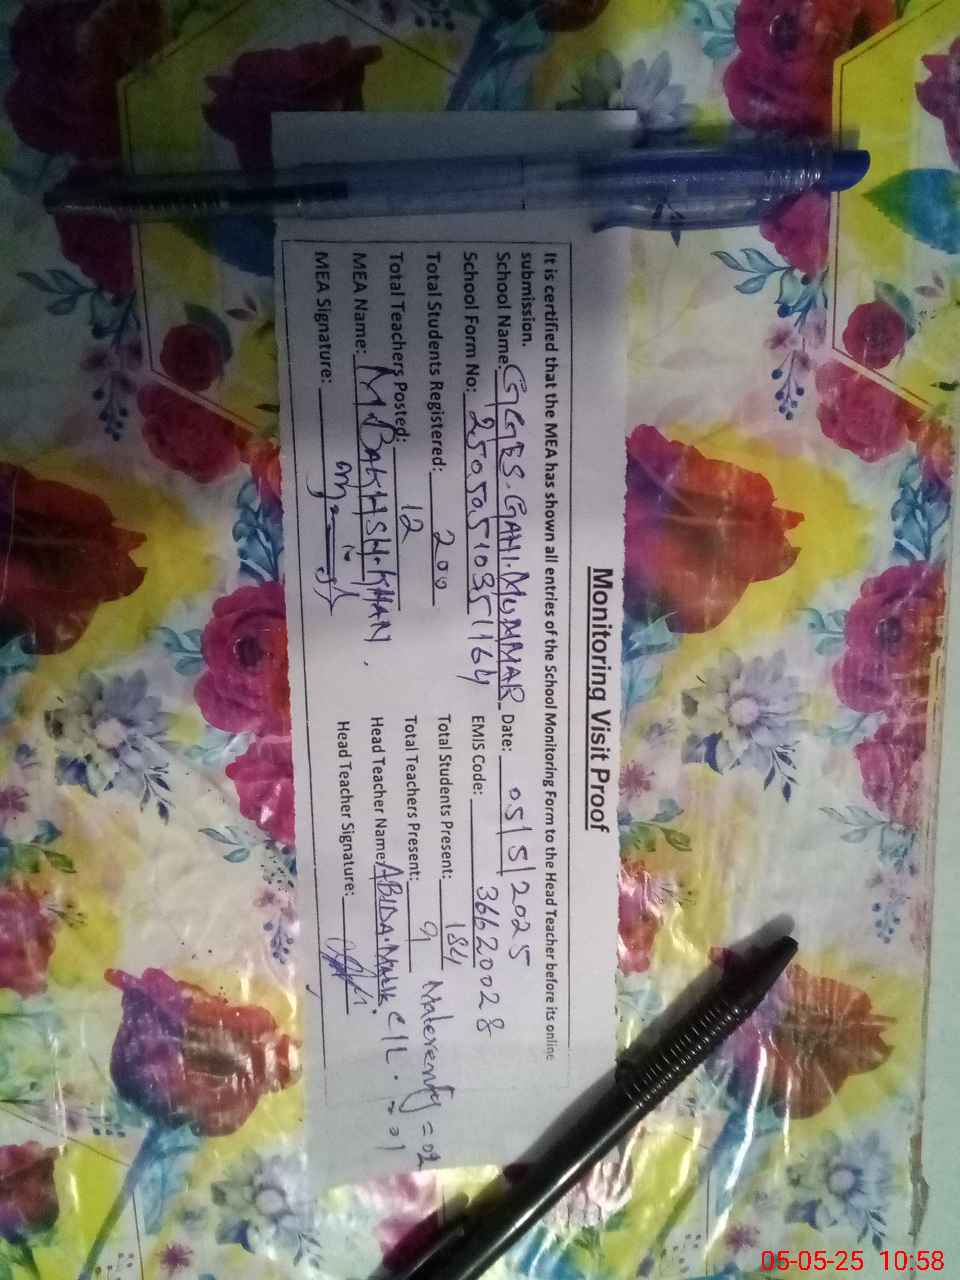 Monitoring Visit Proof
It is certified that the MEA has shown all entries of the School Monitoring Form to the Head Teacher before its online
submission.
School Name: GGES. GAHI. MUMMAR Date: 05/5/2025
School Form No: 25050510351164 EMIS Code: 36620028
Total Students Registered: 200 Total Students Present: 184
Total Teachers Posted: 12 Total Teachers Present: 9 Materenty = 02
MEA Name: M. BAKHSH. KHAN. Head Teacher Name: ABIDA. Malik. C/L. = 01
MEA Signature: Head Teacher Signature:
05-05-25 10:58